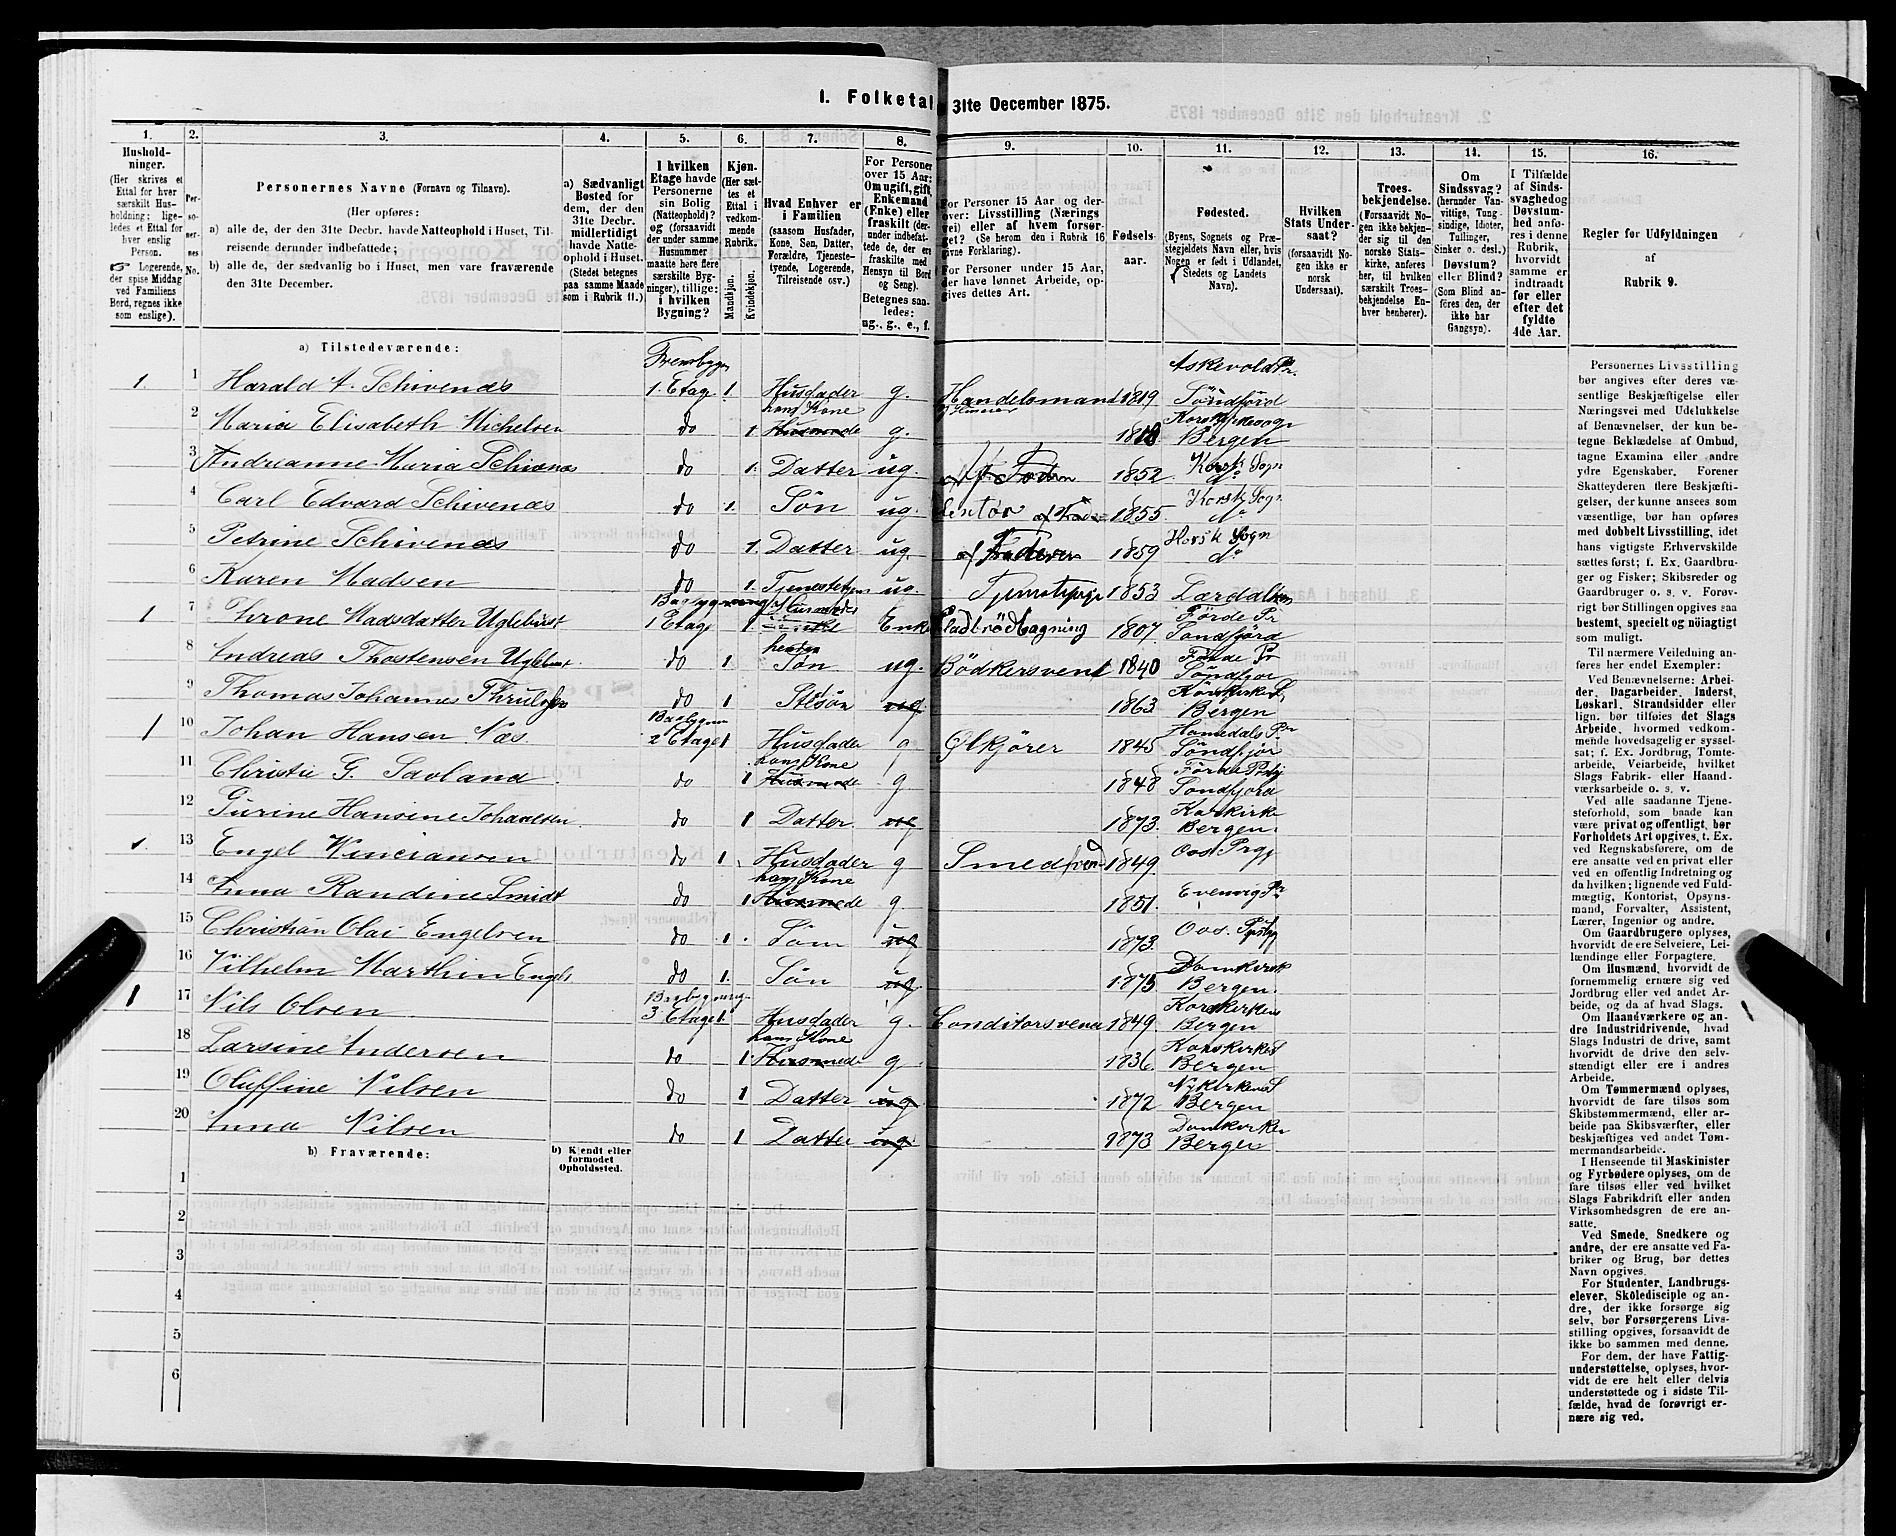 I. Folketal 31te December 1875.
1. 2. 3. 4. 5. 6. 7. 8. 9. 10. 11. 12. 13. 14. 15. 16.
Husholdninger.
(Her skrives et Ettal for hver særskilt Husholdning; ligeledes et Ettal for hver enslig Person.
☞ Logerende, der spise Middag ved Familiens Bord, regnes ikke som enslige).
Personernes No.
Personernes Navne (Fornavn og Tilnavn).
(Her opføres:
a) alle de, der den 31te Decbr. havde Natteophold i Huset, Tilreisende derunder indbefattede;
b) alle de, der sædvanlig bo i Huset, men vare fraværende den 31te December.
a) Sædvanligt Bosted for dem, der den 31te Decbr. midlertidigt havde Natteophold i Huset.
(Stedet betegnes paa samme Maade som i Rubrik 11.)
I hvilken Etage havde Personerne sin Bolig (Natteophold)? og (forsaavidt der under samme Husnummer maatte høre flere særskilte Bygninger), tillige: i hvilken Bygning?
Kjøn.
(Her sættes et Ettal i vedkommende Rubrik.
Mandkjøn.
Kvindekjøn.
Hvad Enhver er i Familien
(saasom Husfader, Kone, Søn, Datter, Forældre, Tjenestetyende, Logerende, Tilreisende osv.)
For Personer over 15 Aar: Om ugift, gift, Enkemand (Enke) eller fraskilt (derunder indbefattede de, der ere fraskilte med Hensyn til Bord og Seng).
Betegnes saaledes: ug., g., e., f.
For Personer 15 Aar og derover: Livsstilling (Nærings vei) eller af hvem forsørget? (Se herom den i Rubrik 16 givne Forklaring).
For Personer under 15 Aar, der have lønnet Arbeide, opgives dettes Art.
Fødselsaar.
Fødested.
(Byens, Sognets og Præstegjeldets Navn eller, hvis Nogen er født i Udlandet, Stedets og Landets Navn).
Hvilken Stats Undersaat?
(forsaavidt Nogen ikke er norsk Undersaat).
Troesbekjendelse.
(Forsaavidt Nogen ikke bekjender sig til den norske Statskirke, anføres her, til hvilken særskilt Troesbekjendelse Enhver henhører).
Om Sindssvag? (herunder Vanvittige, Tungsindige, Idioter, Tullinger, Sinker o. desl.) Døvstum? eller Blind?
(Som Blind anføres den, der ikke har Gangsyn).
I Tilfælde af Sindssvaghed og Døvstumhed anføres i denne Rubrik, hvorvidt samme er indtraadt før eller efter det fyldte 4de Aar.
Regler for Udfyldningen af Rubrik 9.
a) Tilstedeværende:
1 1 Harald A. Schivenæs 1. Etag 1. Husfader g. Handelsmand 1819 Askevold Pr. Söndfjörd
2 Maria Elisabeth Michelsen do 1 hans Kone g. 1818 Korskirkesogn Bergen
3 Andreanne Maria Schivenæs do 1. Datter ug. 1852 Korsk Sogn do
4 Carl Edvard Schivenæs do 1. Søn ug. 1855 Korsk Sogn do
5 Petrine Schivenæs do 1. Datter ug. af Faderen 1859 Korsk Sogn do
6 Karen Madsen do 1. ug. Tjenestepige 1853 Lærdalsøren
1 7 Throne Madsdatter Uglehust Bagbygning 1 Etag 1 Husmoder Enke Fladbrödbagning 1807 Förde Pr Söndfjörd
8 Andreas Thostensen do 1 hendes Søn ug. Bödkersvend 1840 Förde Pr Söndfjor
9 Thomas Johannes do 1 1863 Korskirke S. Bergen
1 10 Johan Hansen Næs. Bagbygnin 2 Etage 1 Husfader g Ølkjører 1845 Pr Söndfjor
11 Christie G. Savland do 1 hans Kone g 1848 Förde Prstj Söndfjord
12 Gurine Hansine Johansen do 1 Datter 1873. Korskirke Bergen.
1. 13 Engel Vinciansen do 1. Husfader g Smedsvend 1849. Oos. Prgj
14 Anna Randine Smidt do 1 hans Kone g 1851. Evenvig Pr
15 Christian Olai Engelsen do 1. Søn ug 1873. Oos.
16 Vilhelm Marthin Engels do 1. Søn ug 1875 Domkirk Bergen.
1 17 Nils Olsen Bagbygning 3 Etage 1. Husfader g. Conditorsvend 1849. Korskirkens Bergen
18 Larsine Andersen do 1 hans Kone g 1836. Korskirke S Bergen
19 Oluffine Nilsen do 1 Datter ug 1872 Nykirkens S Bergen
20 Anna Nilsen do 1 Datter ug 1873 Domkirke Bergen
b) Fraværende:
b) Kjendt eller formodet Opholdssted.
1
2
3
4
5
6
Personernes Livsstilling bør angives efter deres væsentlige Beskjæftigelse eller Næringsvei med Udelukkelse af Benævnelser, der kun betegne Beklædelse af Ombud, tagne Examina eller andre ydre Egenskaber. Forener Skatteyderen flere Beskjæftigelser, der kunne ansees som væsentlige, bør han opføres med dobbelt Livsstilling, idet hans vigtigste Erhvervskilde sættes først; f. Ex. Gaardbruger og Fisker; Skibsreder og Gaardbruger o. s. v. Forøvrigt bør Stillingen opgives saa bestemt, specielt og nøiagtigt som muligt.
Til nærmere Veiledning anføres her endel Exempler:
Ved Benævnelserne: Arbeider, Dagarbeider, Inderst, Løskarl, Strandsidder eller lign. bør tilføies det Slags Arbeide, hvormed vedkommende hovedsagelig er sysselsat; f. Ex. Jordbrug, Tomtearbeide, Veiarbeide, hvilket Slags Fabrik- eller Haandværksarbeide o. s. v.
Ved alle saadanne Tjenesteforhold, som baade kan være privat og offentligt, bør Forholdets Art opgives, t. Ex. ved Regnskabsførere, om de ere ansatte ved en privat eller ved en offentlig Indretning og da hvilken; lignende ved Fuldmægtig, Kontorist, Opsynsmand, Forvalter, Assistent, Lærer, Ingeniør og andre.
Om Gaardbrugere oplyses, hvorvidt de ere Selveiere, Leilændinge eller Forpagtere.
Om Husmænd, hvorvidt de fornemmelig ernære sig ved Jordbrug eller ved andet Arbeide, og da af hvad Slags.
Om Haandværkere og andre Industridrivende, hvad Slags Industri de drive, samt hvorvidt de drive den selvstændigt eller ere i andres Arbeide.
Om Tømmermænd oplyses, hvorvidt de fare tilsøs som Skibstømmermænd, eller arbeide paa Skibsværfter, eller beskjæftiges ved andet Tømmermandsarbeide.
I Henseende til Maskinister og Fyrbødere oplyses, om de fare tilsøs eller ved hvilket Slags Fabrikdrift eller anden Virksomhedsgren de ere ansatte.
Ved Smede, Snedkere og andre, der ere ansatte ved Fabriker og Brug, bør dettes Navn opgives.
For Studenter, Landbrugselever, Skoledisciple og andre, der ikke forsørge sig selv, bør Forsørgerens Livsstilling opgives, forsaavidt de ikke bo sammen med denne.
For dem, der have Fattigunderstøttelse, oplyses, hvorvidt de ere helt eller delvis understøttede og i sidste Tilfælde, hvad de forøvrigt ernære sig ved.